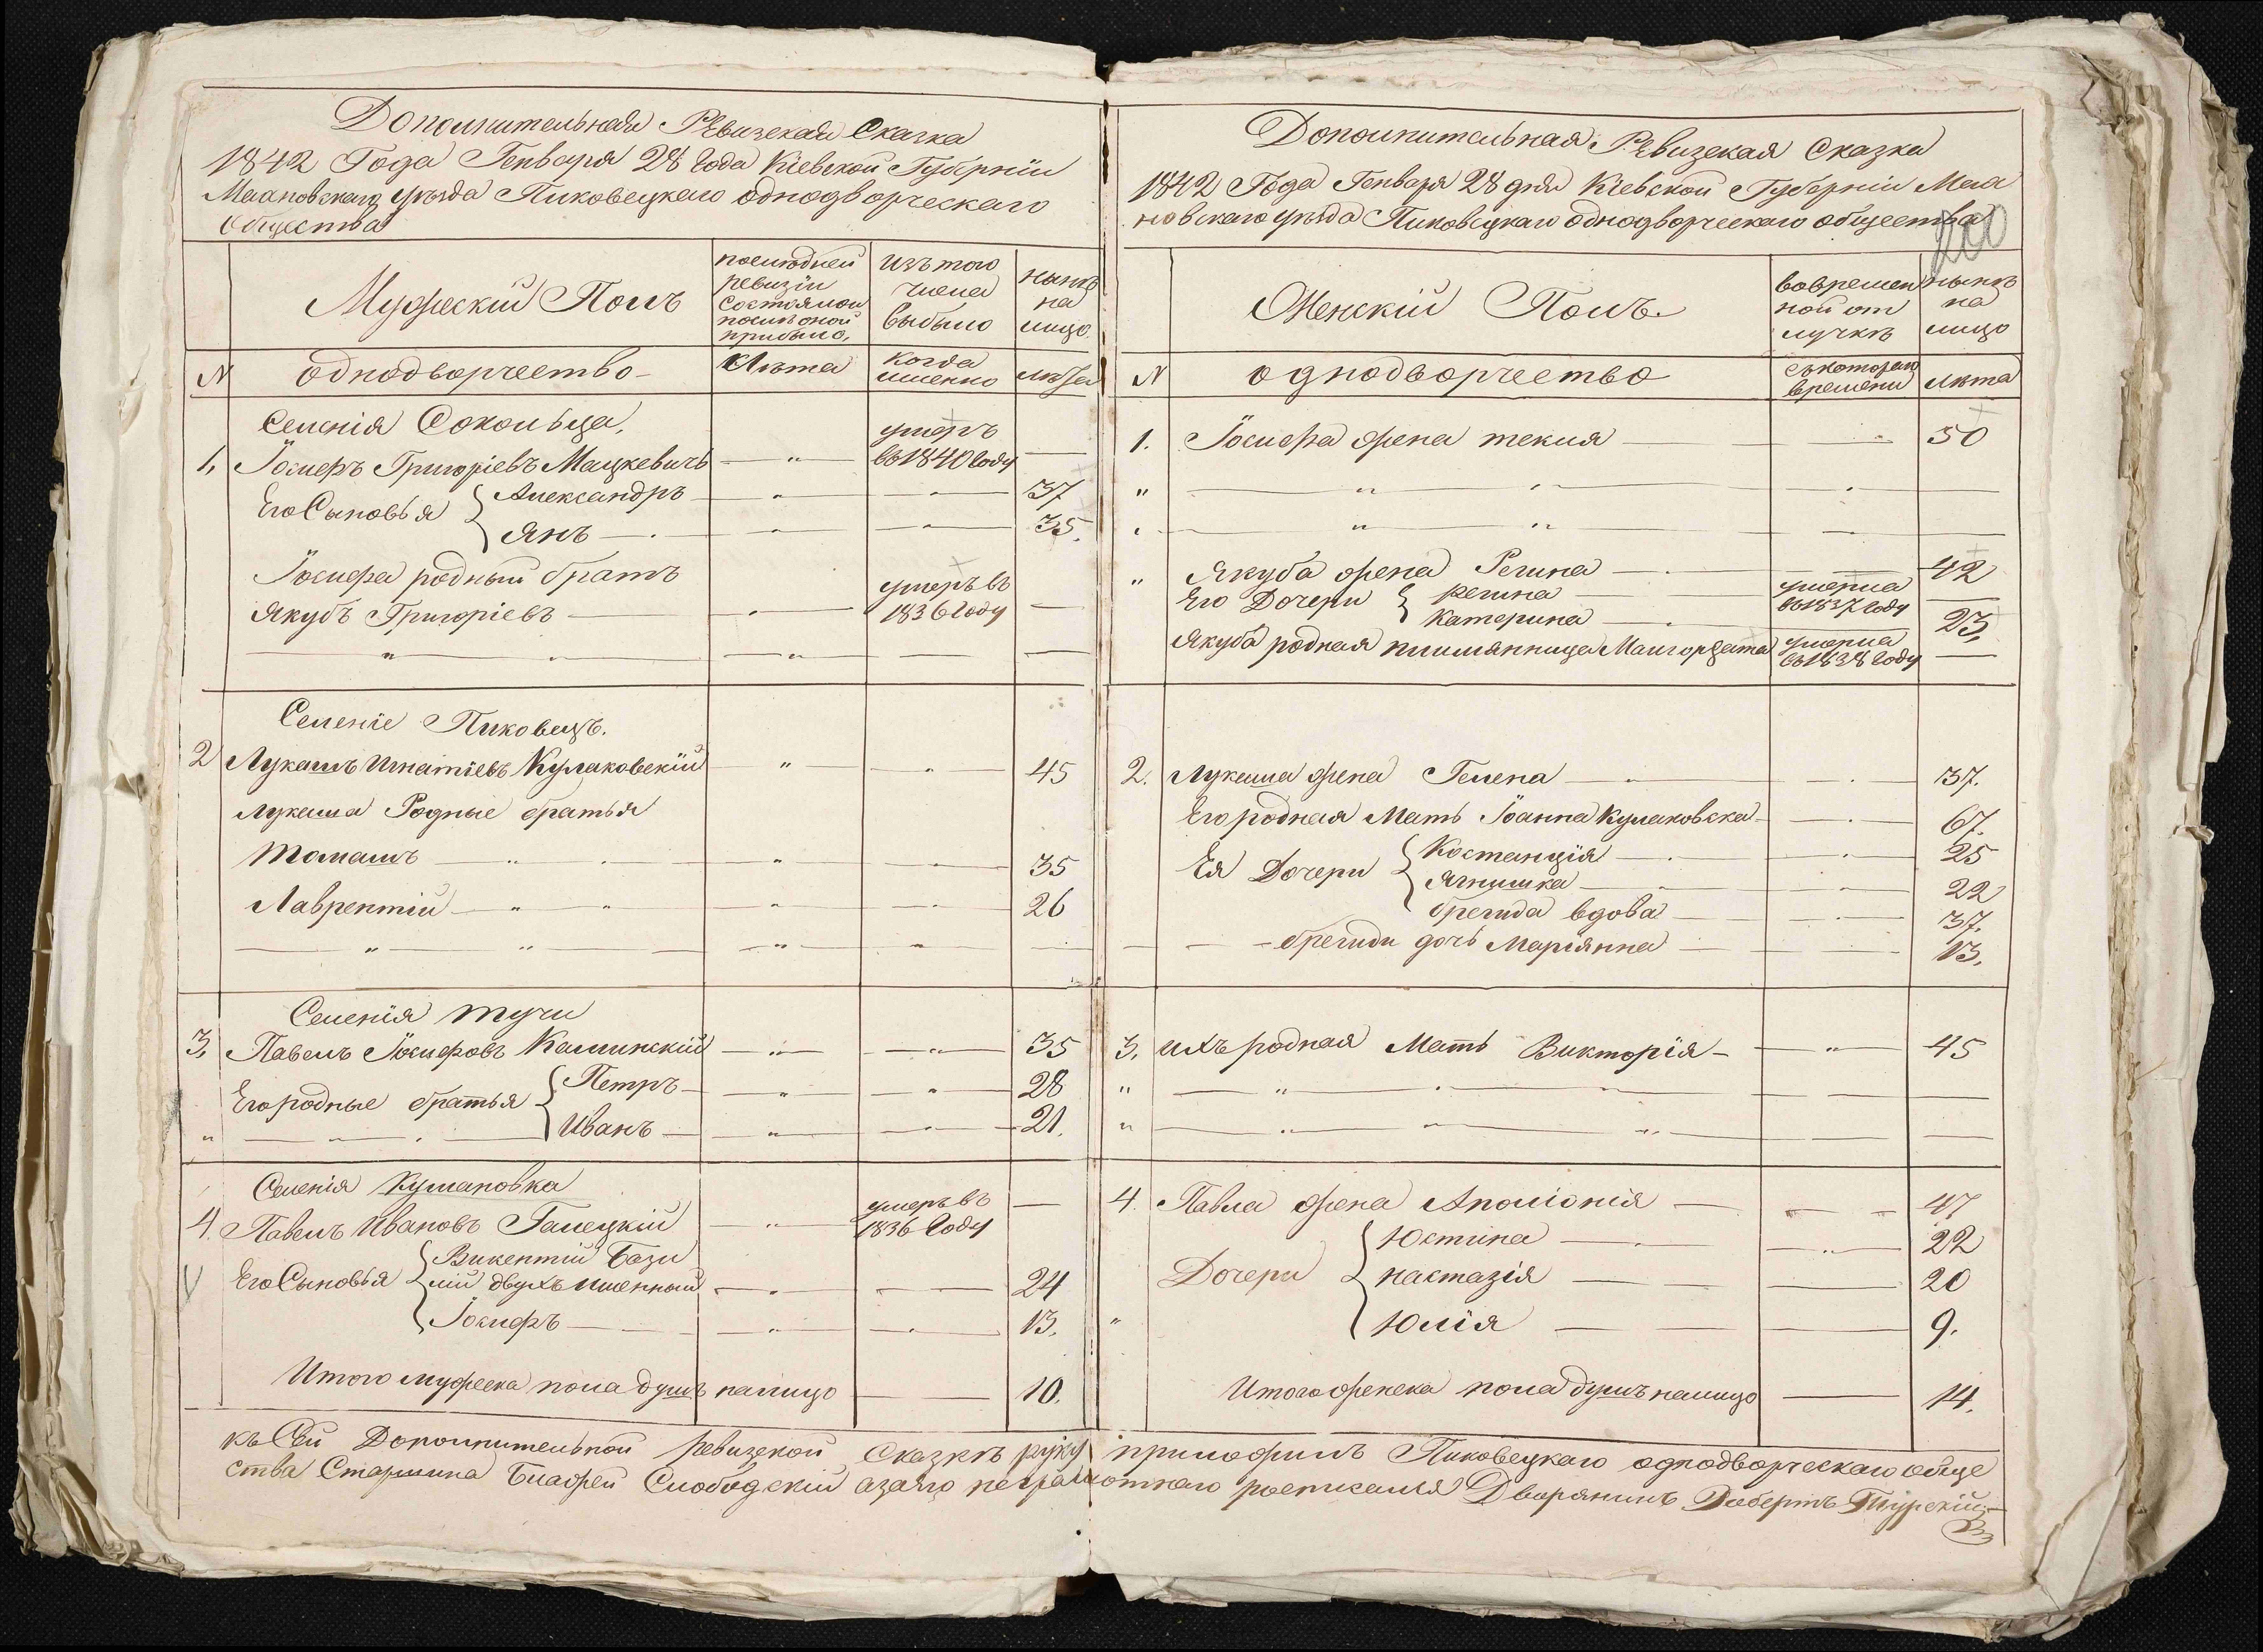 Дополнительная Ревизская Сказка
1842 Года Генваря 28 года Кіевской Губерніи
Маановскаго уѣзда Пиковецкаго однодворческаго
Общества
Мужескій Полъ
послѣдней
ревизіи
состояло и
послѣ оной
прибыло,
Изъ того
числа
выбыло
нынѣ
на
лицо.
N
однодворчество
Лѣта
когда
именно
лѣта
Селенія Сокольца,
1, Іосифъ Григоріевъ Мацкевичъ
умеръ
въ 1840 году
Его Сыновья
Александръ 37
Янъ 35.
Іосифа родный братъ
Якубъ Григоріевъ
умеръ въ
1836 году
Селеніе Пиковецъ.
2 Лукашъ Игнатіевъ Кулаковскій 45
Лукаша Родные братья
Томашъ 35
Лаврентій 26
Селенія Тучи
3, Павелъ Іосифовъ Калинскій 35
Его родные братья
Петръ 28
Иванъ 21.
Селенія Кумановка
4. Павелъ Ивановъ Галецкій
умеръ въ
1836 году
Его Сыновья
Викентій Бази
лій двухъ именный 24
Іосифъ 13.
Итого мужеска пола душъ налицо 10.
Дополнительная Ревизская Сказка
1842 Года Генваря 28 дня Кіевской Губерніи Маа
новскаго уѣзда Пиковецкаго однодворческаго общества
200
Женскій Полъ.
вовремен
ной от
лучкѣ
нынѣ
на
лицо
N
однодворчество
съкотораго
времени
лѣта
1. Іосифа жена текля 50
Якуба жена Регина 42
Его Дочери
регина
умерла
въ 1837 году
Катерина 23,
Якуба родная племянница Малгоржата
умерла
въ 1838 году
2. Лукаша жена Гелена 37.
Его родная Мать Іоанна Кулаковска 67.
Ея Дочери
Костанція 25
Ягнишка 22
бригида вдова 37.
бригиди дочь Маріянна 13.
3, ихъ родная Мать Викторія 45
4. Павла жена Аполіонія 47
Дочери
Юстина 22
настазія 20
Юлія 9.
Итого женска пола душъ налицо 14.
къ Сей Дополнительной ревизской сказкѣ руку приложилъ Пиковецкаго однодворческаго обще
ства Старшина Слободскій а за его неграмотнаго росписался Дворянинъ